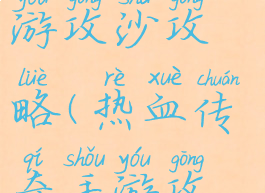 yóu gōng shā gōng
游攻沙攻
lüè rè xuè chuán
略(热血传
qí shǒu yóu gōng
奇手游攻